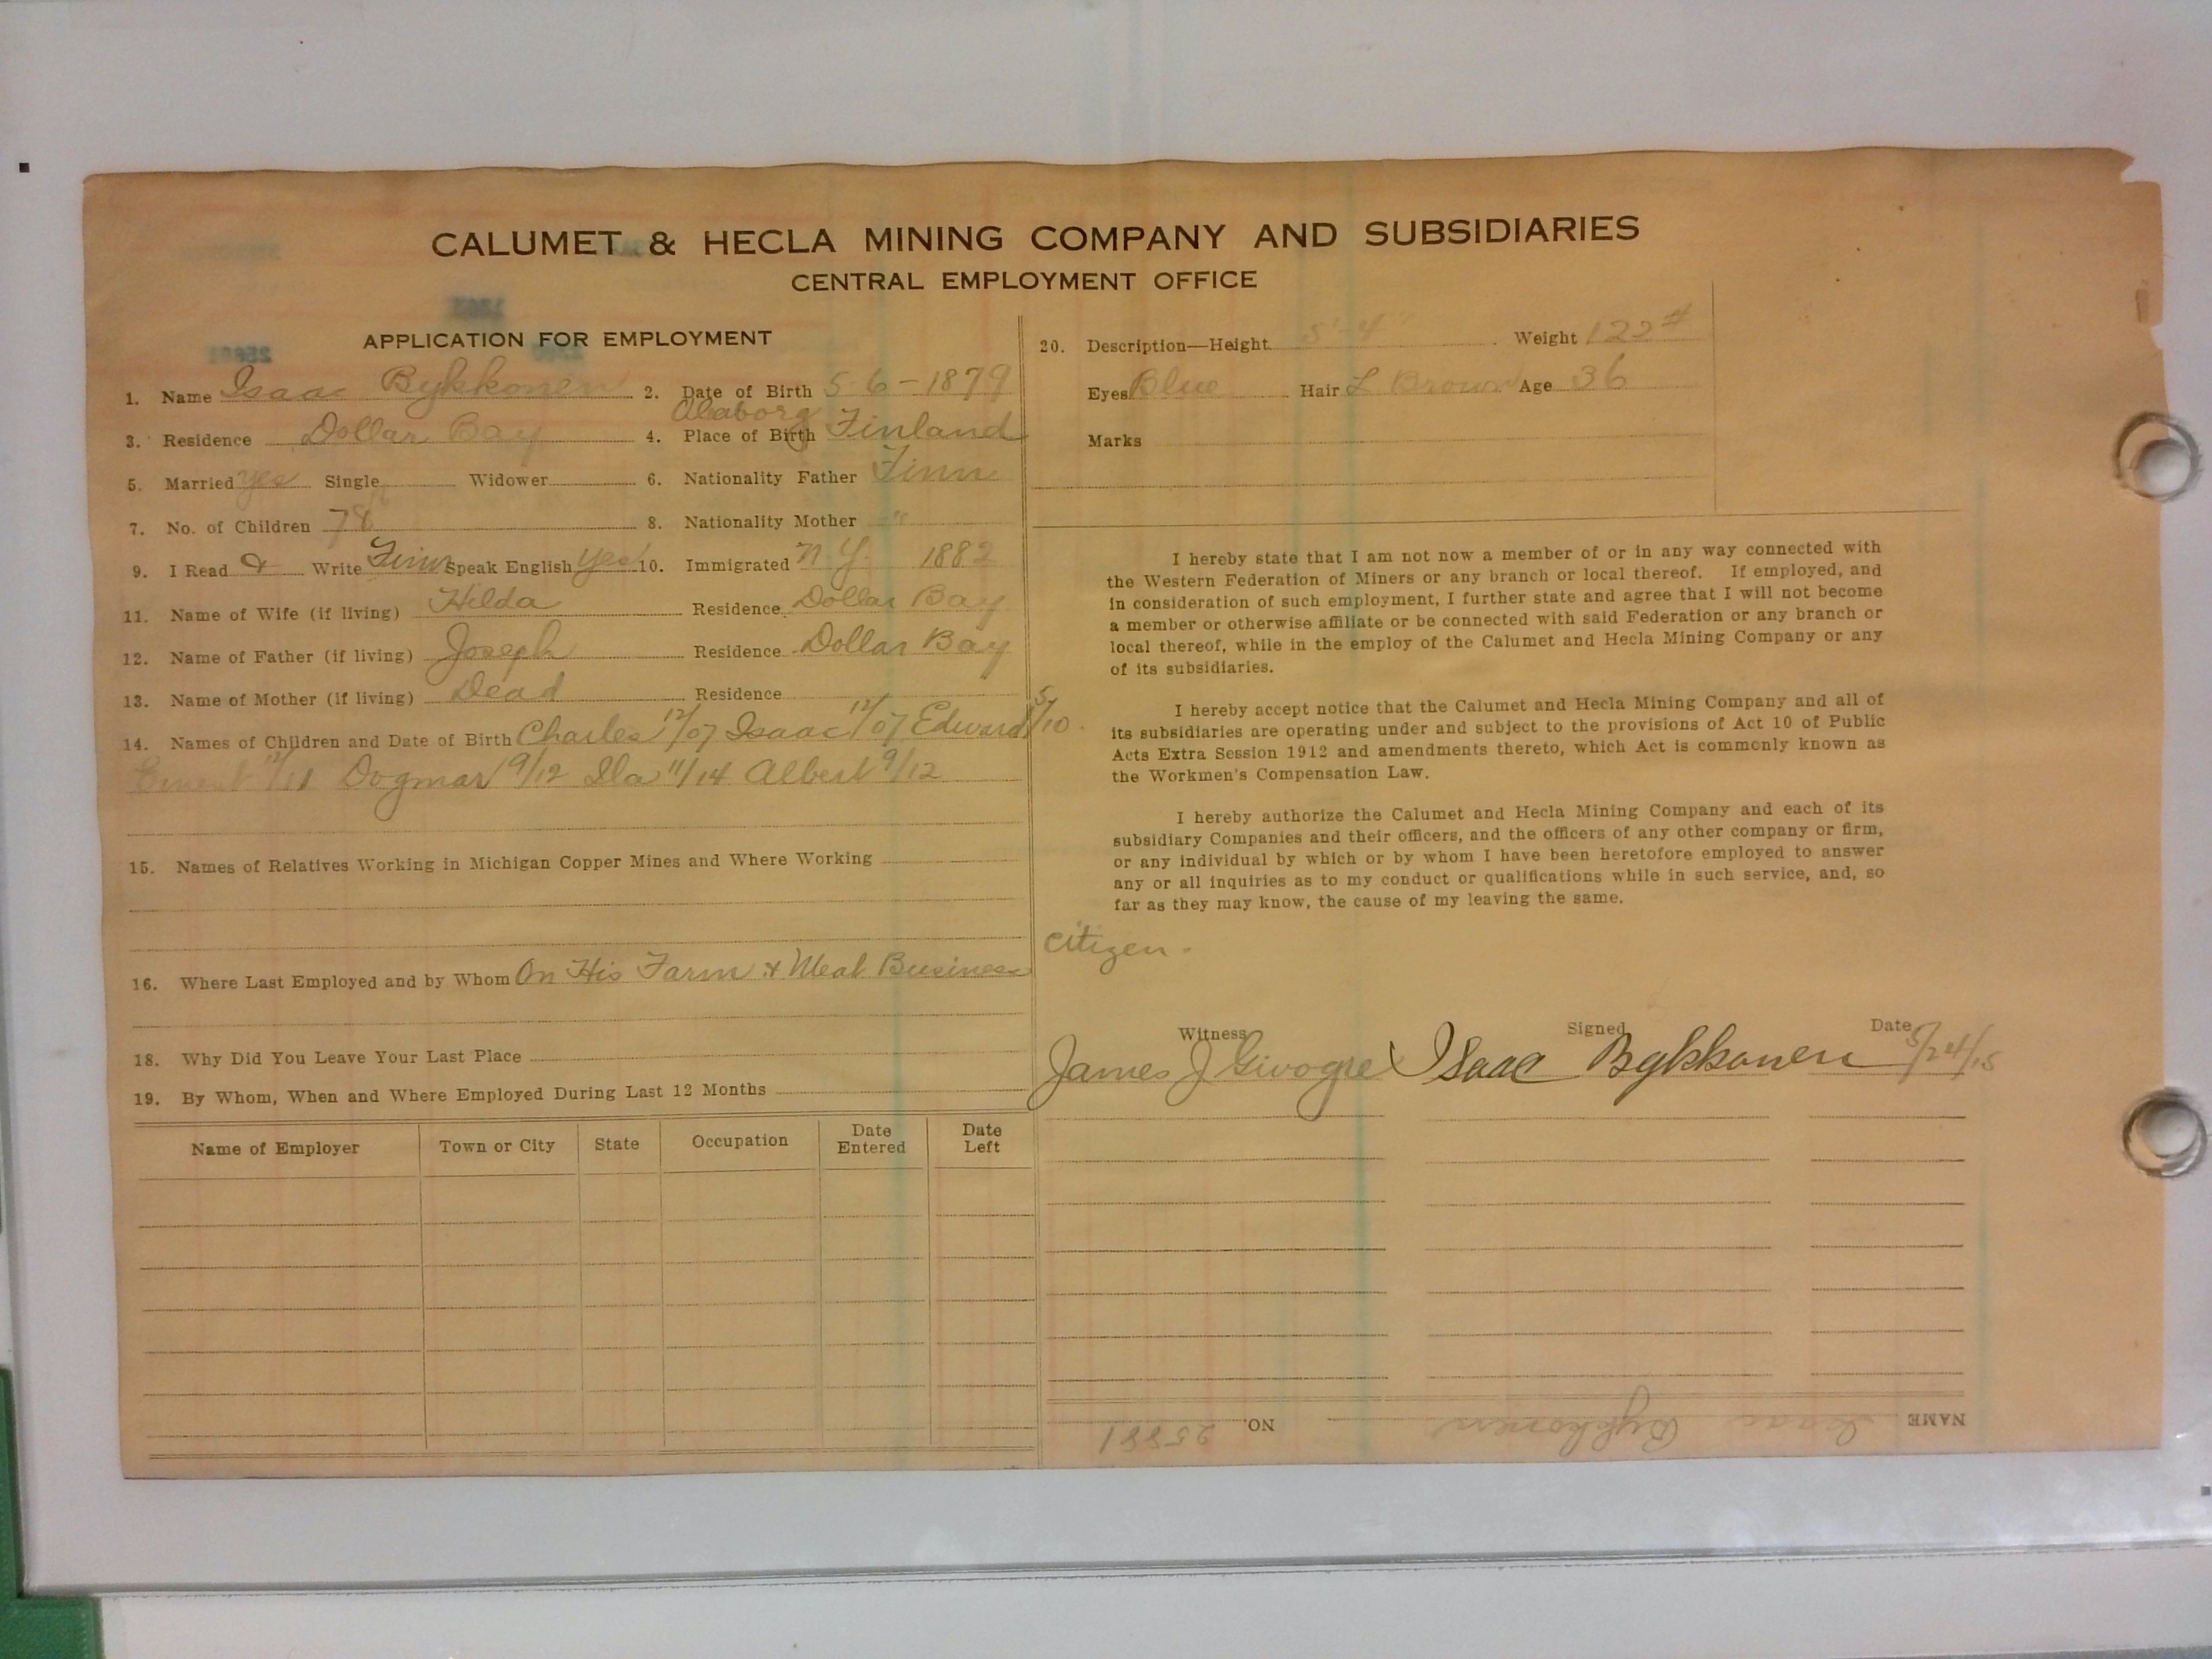 CALUMET & HECLA MINING COMPANY AND SUBSIDIARIES
CENTRAL EMPLOYMENT OFFICE
APPLICATION FOR EMPLOYMENT
1. Name Isaac Bykkonen 2. Date of Birth 5-6-1879
3. Residence Dollar Bay 4. Place of Birth Finland
5. Married yes Single Widower 6. Nationality Father Finn
7. No. of Children 8. Nationality Mother "
9. I Read & Write Finn Speak English yes 10. Immigrated N.Y. 1882
11. Name of Wife (if living) Hilda Residence Dollar Bay
12. Name of Father (if living) Joseph Residence Dollar Bay
13. Name of Mother (if living) Dead Residence
14. Names of Children and Date of Birth Charles 12/07 Isaac 12/07 Edward 5/10.
Dogmar 9/12 Ila 11/14 Albert 9/12
15. Names of Relatives Working in Michigan Copper Mines and Where Working
16. Where Last Employed and by Whom On His Farm & Meat Business
18. Why Did You Leave Your Last Place
19. By Whom, When and Where Employed During Last 12 Months
Name of Employer Town or City State Occupation Date Entered Date Left
20. Description—Height 5'-4" Weight 122#
Eyes Blue Hair L Brown Age 36
Marks
I hereby state that I am not now a member of or in any way connected with
the Western Federation of Miners or any branch or local thereof. If employed, and
in consideration of such employment, I further state and agree that I will not become
a member or otherwise affiliate or be connected with said Federation or any branch or
local thereof, while in the employ of the Calumet and Hecla Mining Company or any
of its subsidiaries.
I hereby accept notice that the Calumet and Hecla Mining Company and all of
its subsidiaries are operating under and subject to the provisions of Act 10 of Public
Acts Extra Session 1912 and amendments thereto, which Act is commonly known as
the Workmen's Compensation Law.
I hereby authorize the Calumet and Hecla Mining Company and each of its
subsidiary Companies and their officers, and the officers of any other company or firm,
or any individual by which or by whom I have been heretofore employed to answer
any or all inquiries as to my conduct or qualifications while in such service, and, so
far as they may know, the cause of my leaving the same.
citizen -
Witness Signed Date
James J Givogre X Isaac Bykkonen 5/24/15
NAME Isaac Bykkonen NO. 25881